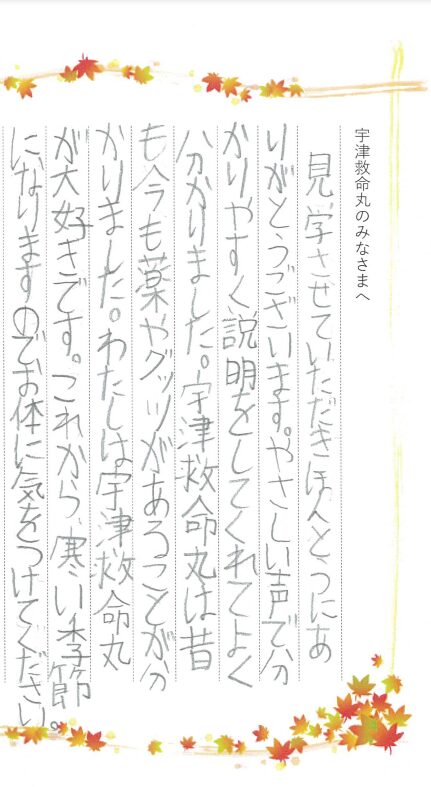 宇津救命丸のみなさまへ
見学させていただきほんとうにあ
りがとうございます。やさしい声で分
かりやすく説明をしてくれてよく
分かりました。宇津救命丸は昔
も今も薬やグッツがあることが分
かりました。わたしは宇津救命丸
が大好きです。これから、寒い季節
に、なりますのでお体に気をつけてください。